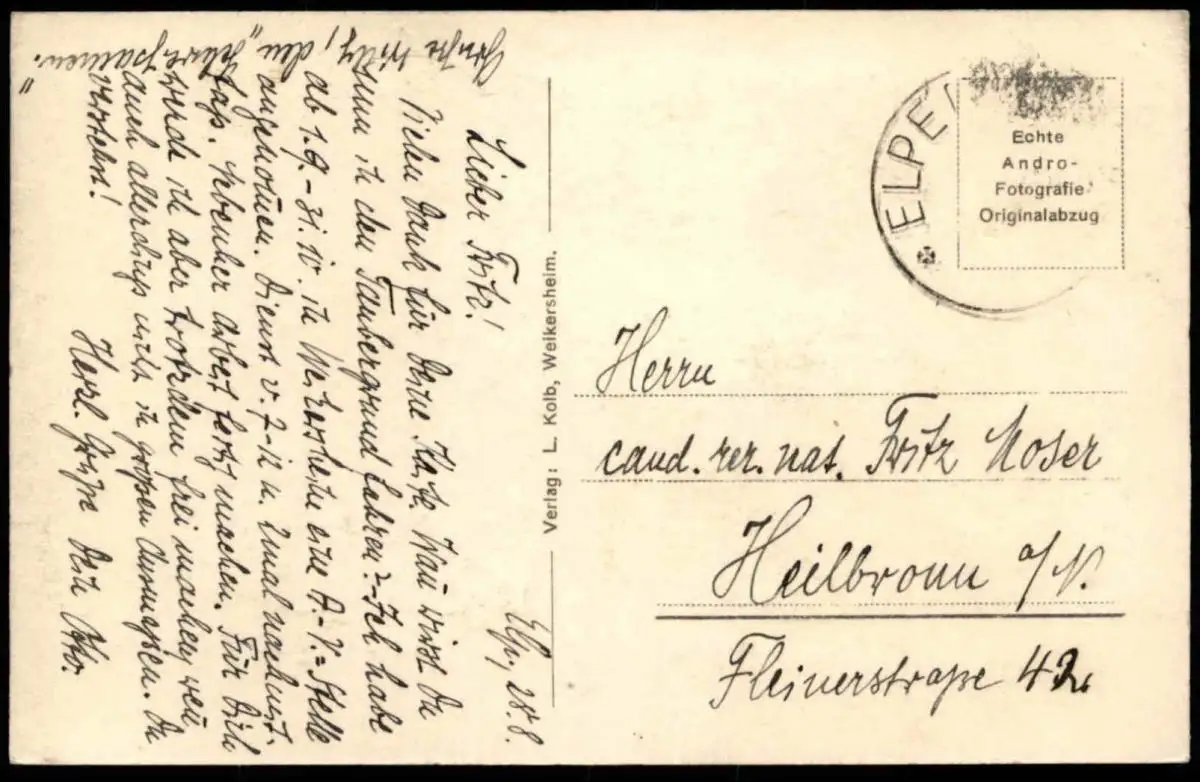 Elp., 28.8.
Lieber Fritz!
Vielen Dank für Deine Karte. Wann wirst Du
nun in den Taubergrund fahren? - Ich habe
ab 1.9. - 31.10. in Weikersheim eine A.-V.=Stelle
angenommen. Dienst v. 7-12 u. 2mal nachmit-
tags. Nebenher Arbeit fertig machen. Für Dich
werde ich aber trotzdem frei machen, wenn
auch allerdings nicht in großen Ausmaßen. Du
verstehst!
Herzl. Grüße Dein Otto.
Grüße Willy, den
Verlag: L. Kolb, Weikersheim.
ELPE
Echte
Andro-
Fotografie
Originalabzug
Herrn
cand. rer. nat. Fritz Moser
Heilbronn a/N.
Fleinerstraße 42